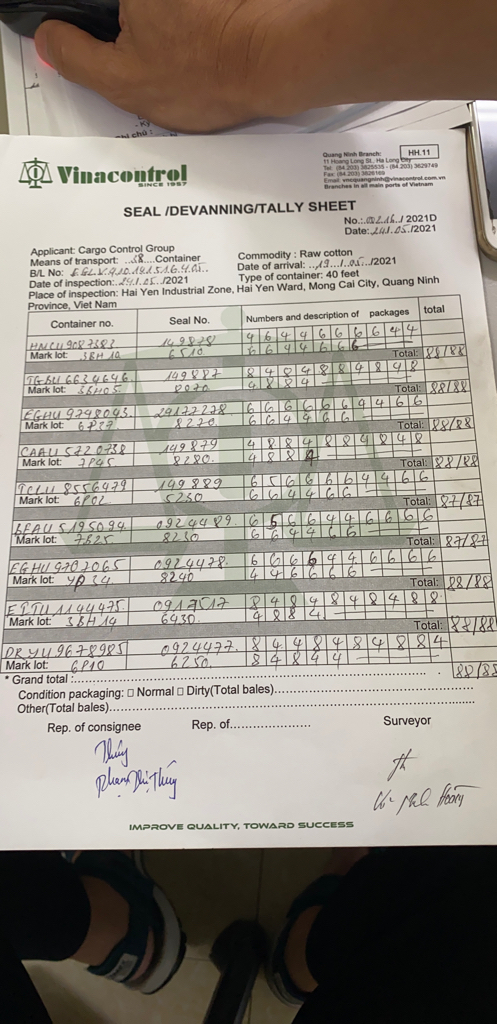 Ký
Ghi chú :
Vinacontrol
SINCE 1957
Quang Ninh Branch:
HH.11
11 Hoang Long St., Ha Long City
Tel: (84.203) 3825535 - (84.203) 3829749
Fax: (84.203) 3828169
Email: vncquangninh@vinacontrol.com.vn
Branches in all main ports of Vietnam
SEAL /DEVANNING/TALLY SHEET
No.: 2021D
Date: 24/.05./2021
Applicant: Cargo Control Group
Commodity : Raw cotton
Means of transport: ..58....Container
Date of arrival: ...19.../.05.../2021
B/L No: EGLV.910.191516.405.
Type of container: 40 feet
Date of inspection: 24/.05./2021
Place of inspection: Hai Yen Industrial Zone, Hai Yen Ward, Mong Cai City, Quang Ninh
Province, Viet Nam
Container no. Seal No. Numbers and description of packages total
149878
Mark lot: 3BH10 6510
Total: 88/88
149887 8 4 8 4 8 8 4 8 4 8
Mark lot: 3BH05 8070 4 8 8 4
Total: 88/88
EGHU 9748043 29177278 6 6 6 6 6 6 4 4 6 6
Mark lot: 6P27 8270 6 6 4 4 6 6
Total: 88/88
CAAU 5720738 149879 4 8 8 4 8 8 4 8 4 8
Mark lot: 7P45 8280. 4 8 8 4
Total: 88/88
TCLU 8556479 149889
Mark lot: 6P02 5250 6 6 4 4 6 6
Total: 87/87
BEAU 5195094 0924489
Mark lot: 7B25 8230 6 6 4 4 6 6
Total: 87/87
EGHU 9707065 0924478 6 6 6 6 4 4 6 6 6 6
Mark lot: 4P34 8240 4 4 6 6 6 6
Total: 88/88
0917517 8 4 8 4 8 4 8 4 8 8
Mark lot: 3BH14 6430 4 8 8 4
Total: 88/88
DRYU 9678985 0924477. 8 4 4 8 4 8 4 8 8 4
Mark lot: 6P10 6250. 8 4 8 4 4
* Grand total : 88/88
Condition packaging: □ Normal □ Dirty(Total bales)
Other(Total bales)
Rep. of consignee Rep. of Surveyor
Thúy
Phạm Thị Thúy
IMPROVE QUALITY, TOWARD SUCCESS